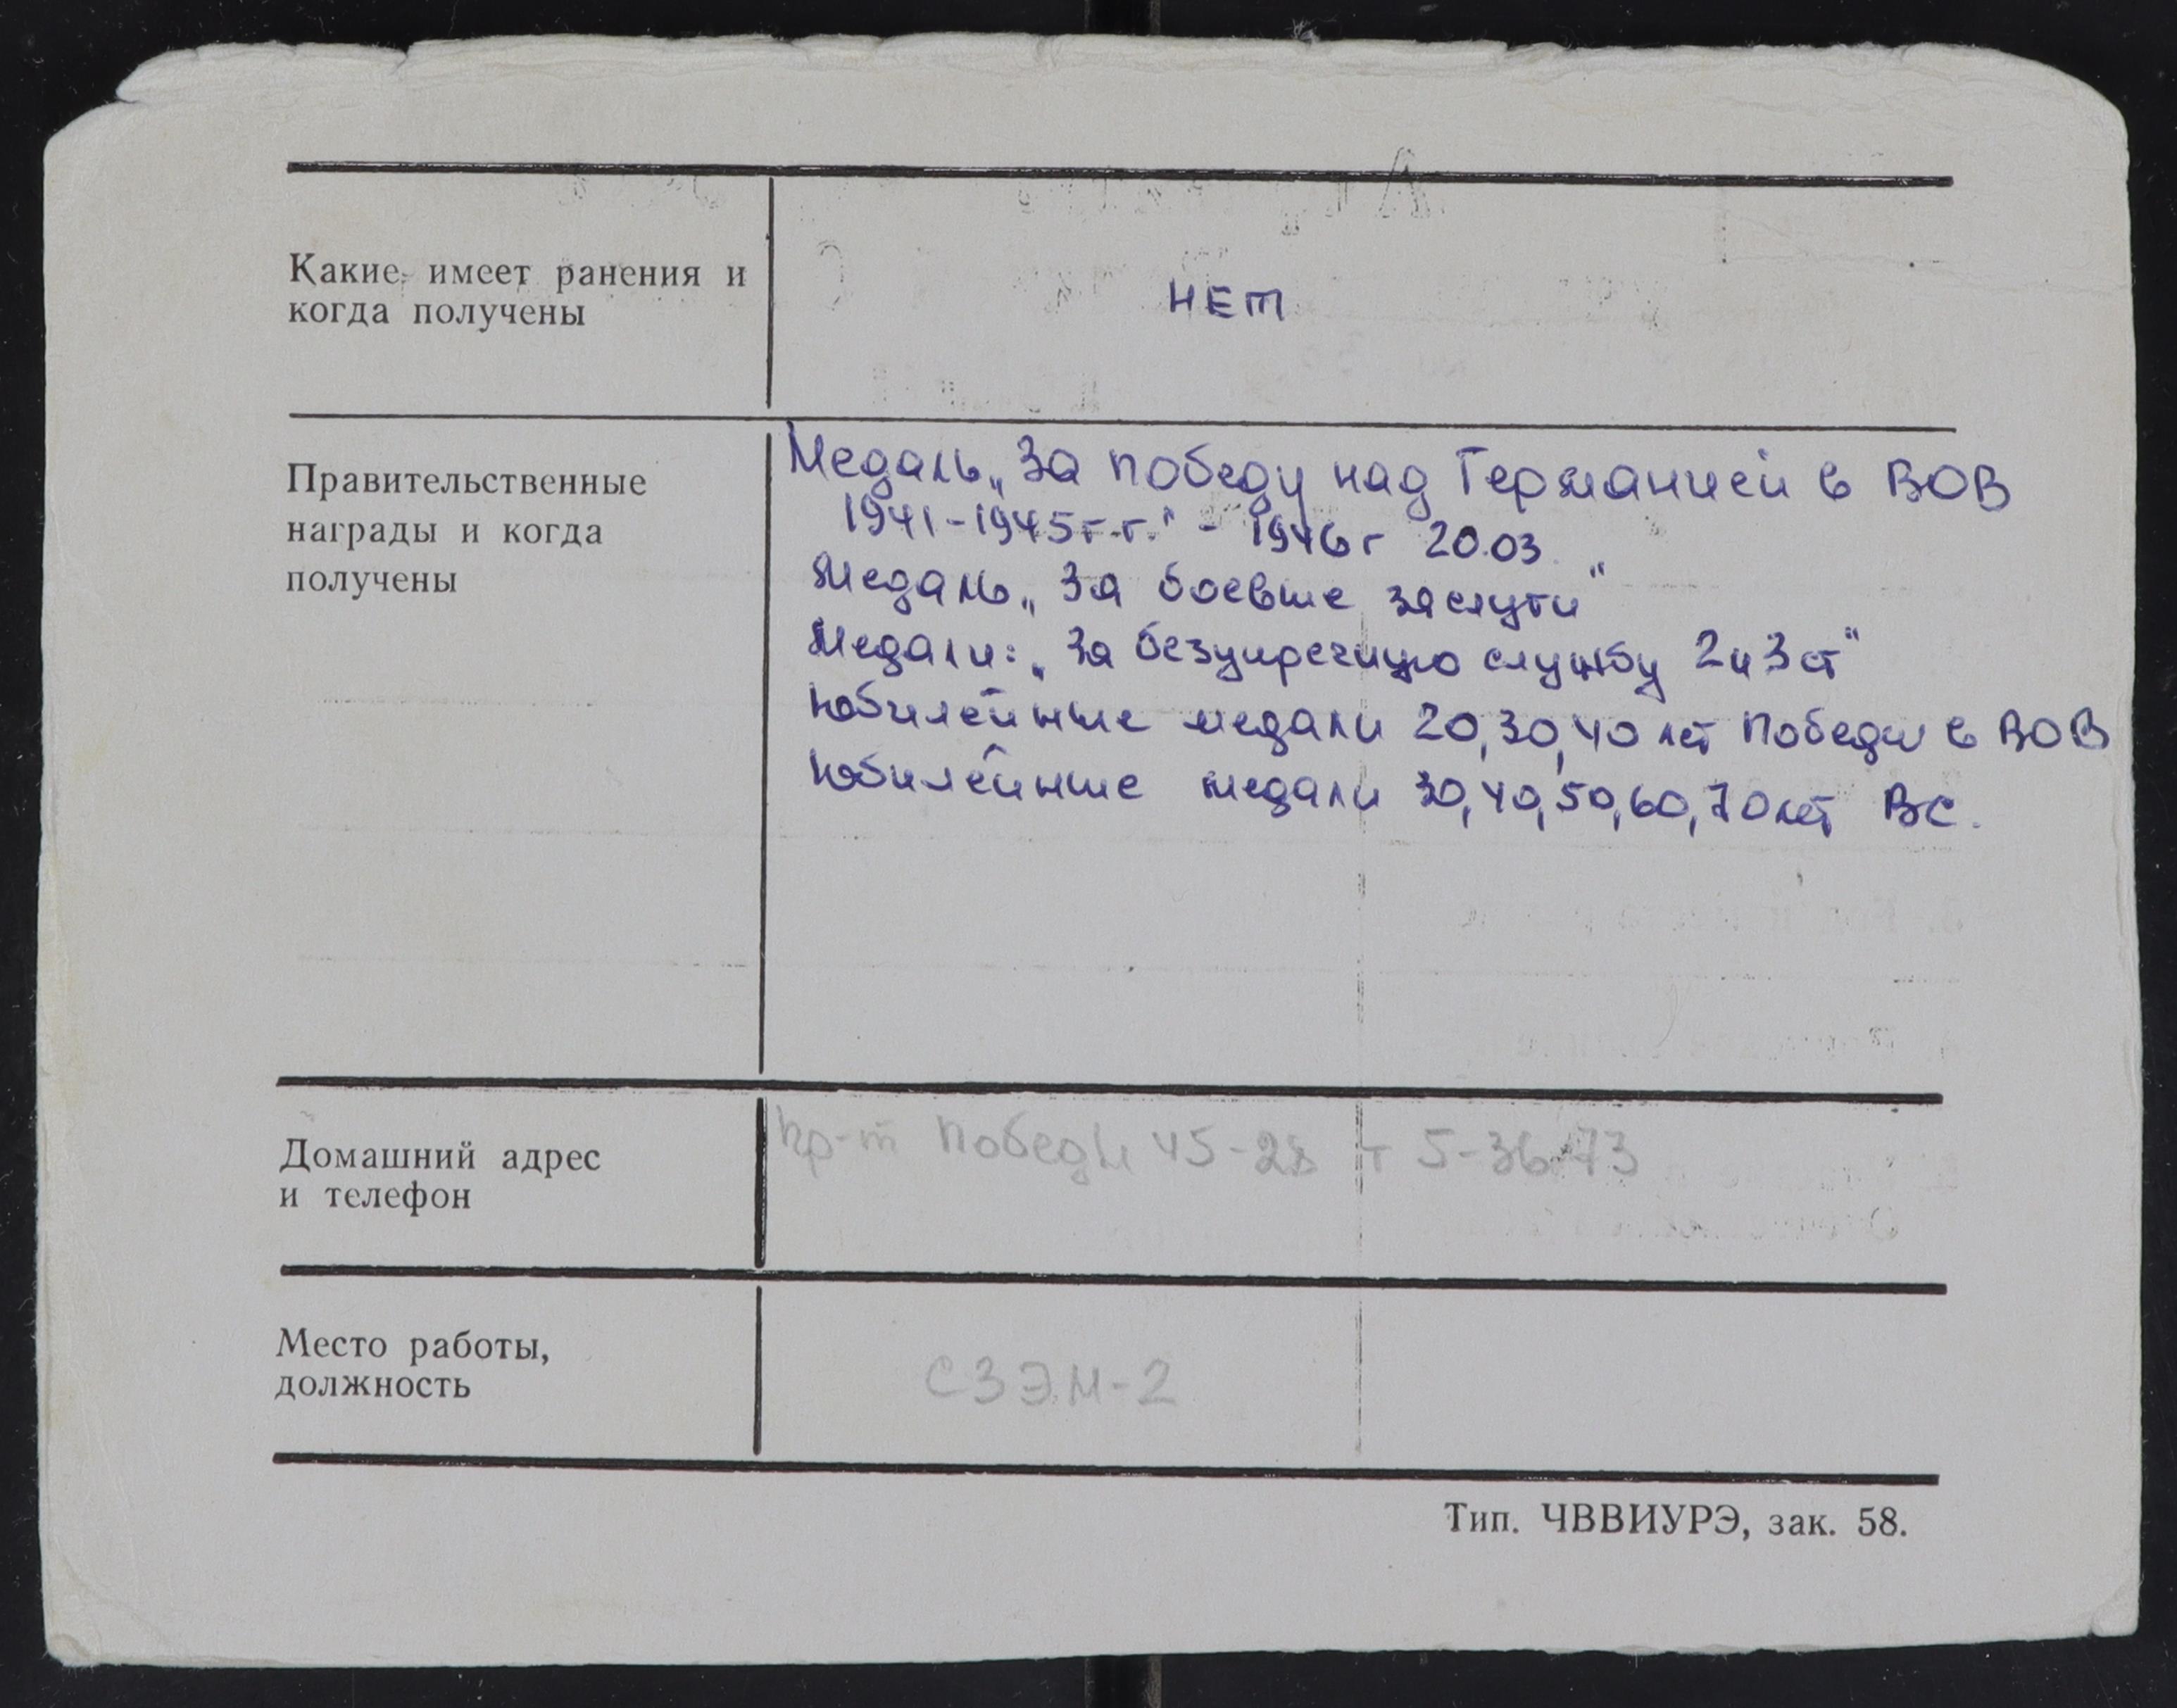 Какие имеет ранения и
когда получены
нет
Правительственные
награды и когда
получены
Медаль „За победу над Германией в ВОВ
1941-1945г.г." - 1946г 20.03.
Медаль „За боевые заслуги"
Медали: „За безупречную службу 2и3ст"
Юбилейные медали 20,30,40 лет Победы в ВОВ
Юбилейные медали 30,40,50,60,70лет ВС.
Домашний адрес
и телефон
пр-т Победы 45-28 т 5-36-73
Место работы,
должность
СЗЭМ-2
Тип. ЧВВИУРЭ, зак. 58.